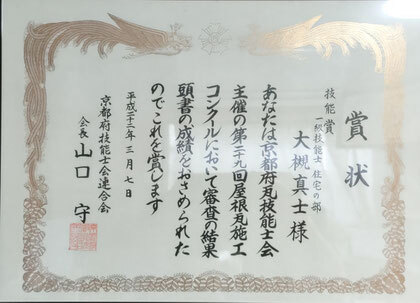 賞状
技能賞
一級技能士 住宅の部
大槻真士様
あなたは京都府瓦技能士会
主催の第二十九回屋根瓦施工
コンクールにおいて審査の結果
頭書の成績をおさめられた
のでこれを賞します
平成二十三年三月七日
京都府技能士会連合会
会長 山口 守